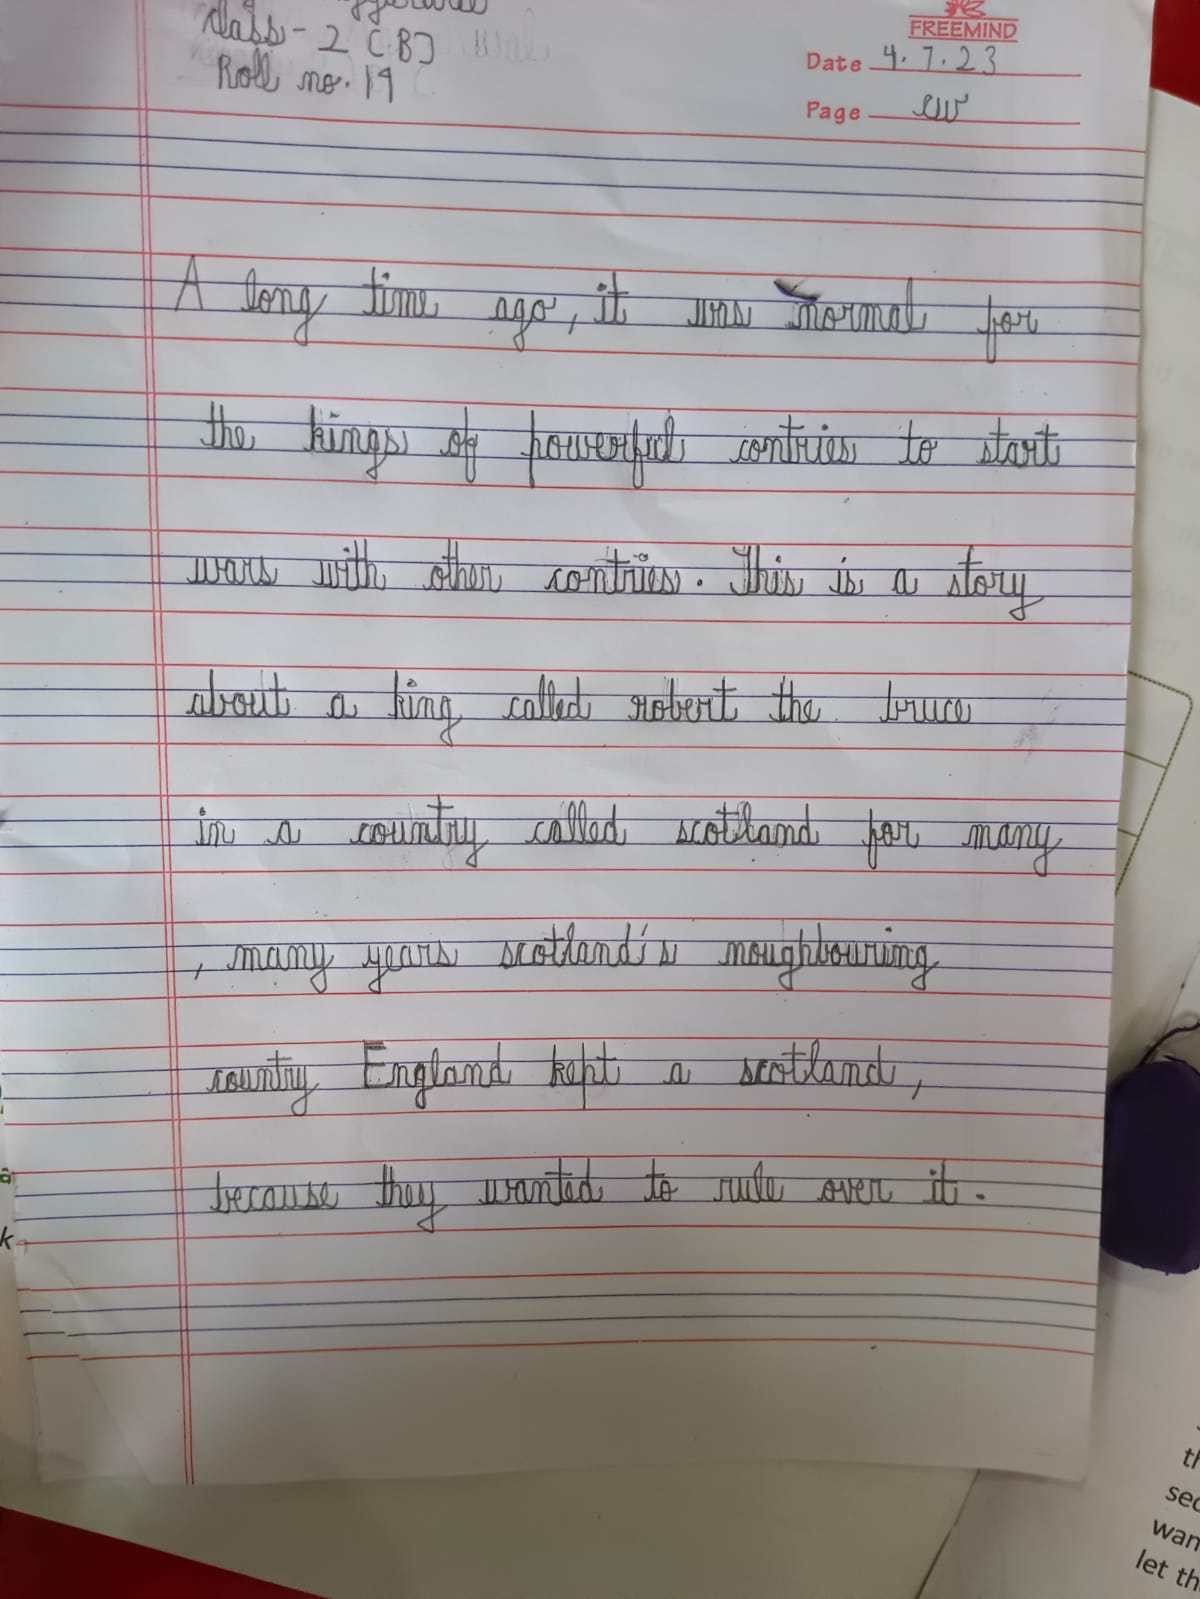 Class - 2 (B)
Roll no. 19
FREEMIND
Date 4.7.23
Page cw
A long time ago, it was normal for
the kings of powerful contries to start
wars with other contries. This is a story
about a king called robert the bruce
in a country called scotland for many
, many years scotland's noughbouring
country England kept a scotland,
because they wanted to rule over it.
k
th
sec
wan
let th